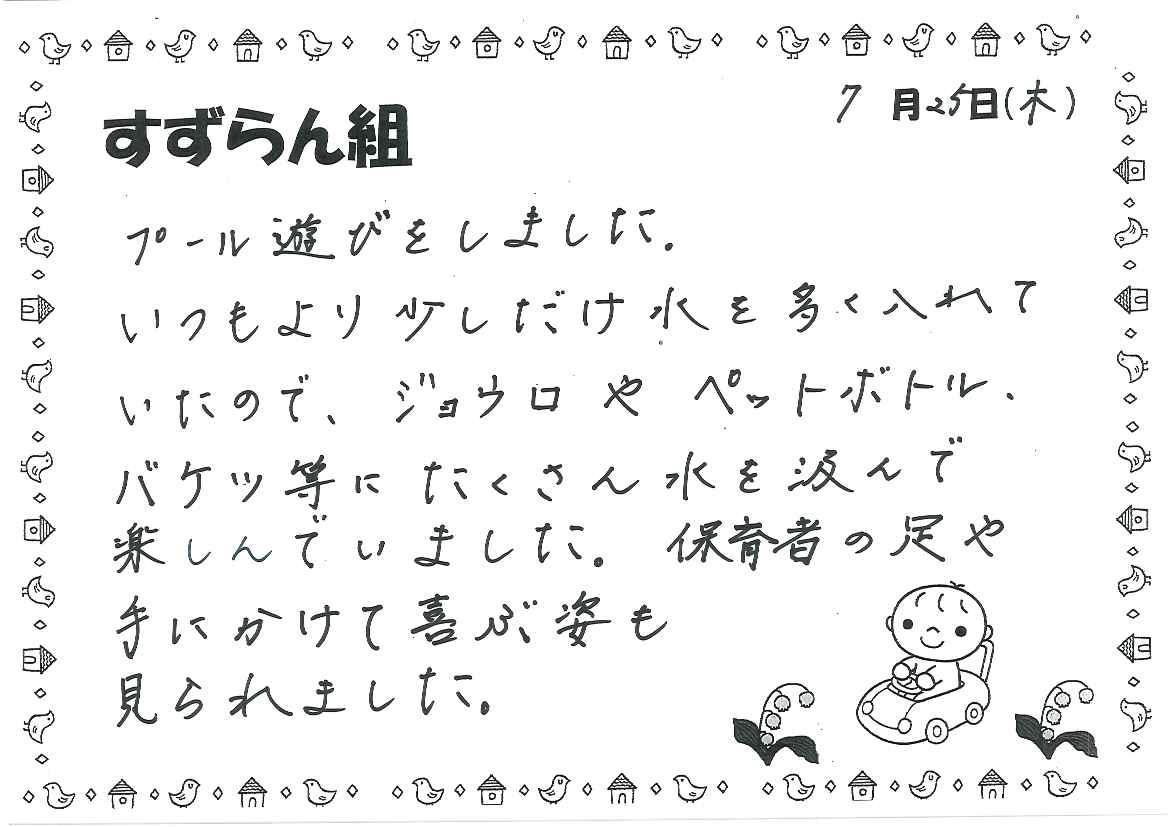 7月25日(木)
すずらん組
プール遊びをしました。
いつもより少しだけ水を多く入れて
いたので、ジョウロやペットボトル、
バケツ等にたくさん水を汲んで
楽しんでいました。保育者の足や
手にかけて喜ぶ姿も
見られました。